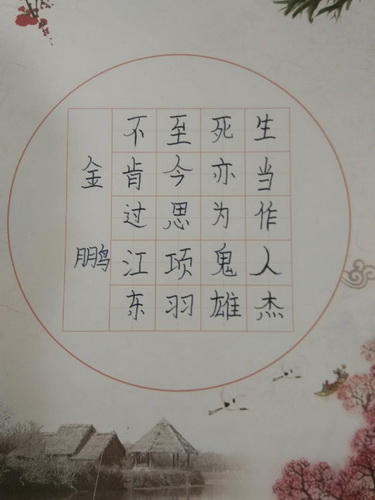 生当作人杰
死亦为鬼雄
至今思项羽
不肯过江东
金鹏